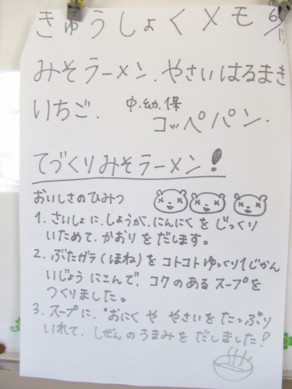 きゅうしょくメモ 6/
みそラーメン.やさいはるまき
いちご. 中.幼.保
コッペパン.
てづくりみそラーメン!
おいしさのひみつ
1. さいしょに.しょうが.にんにくを じっくり
いためて.かおりを だします。
2. ぶたガラ(ほね)を コトコト ゆっくり1じかん
いじょう にこんで、コクのある スープを
つくりました。
3. スープに.おにくや やさいを たっぷり
いれて.しぜんの うまみを だしました!